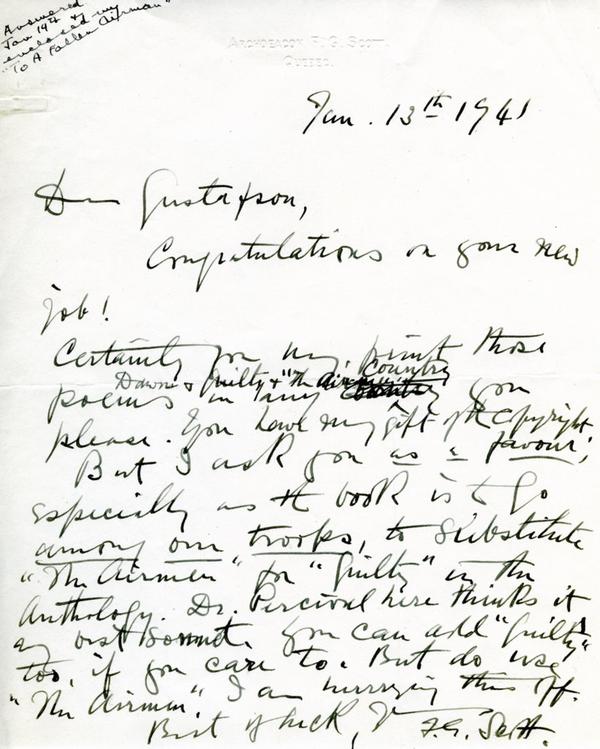 Answered
Jan 14th &
enclosed my
"To A Fallen Airman"
ARCHDEACON F. G. SCOTT
QUEBEC.
Jan. 13th 1941
Dear Gustafson,
Congratulations on your new
job!
Certainly you may print those
Dawn & Guilty & "The Airmen" Country
poems in any you
please. You have my gift of the copyright
But I ask you as a favour,
especially as the book is to go
among our troops, to substitute
"The Airmen" for "Guilty" in the
Anthology. Dr. Percival here thinks it
my best sonnet. You can add "Guilty"
too, if you care to. But do use
"The Airmen". I am hurrying this off.
Best of luck, F. G. Scott.